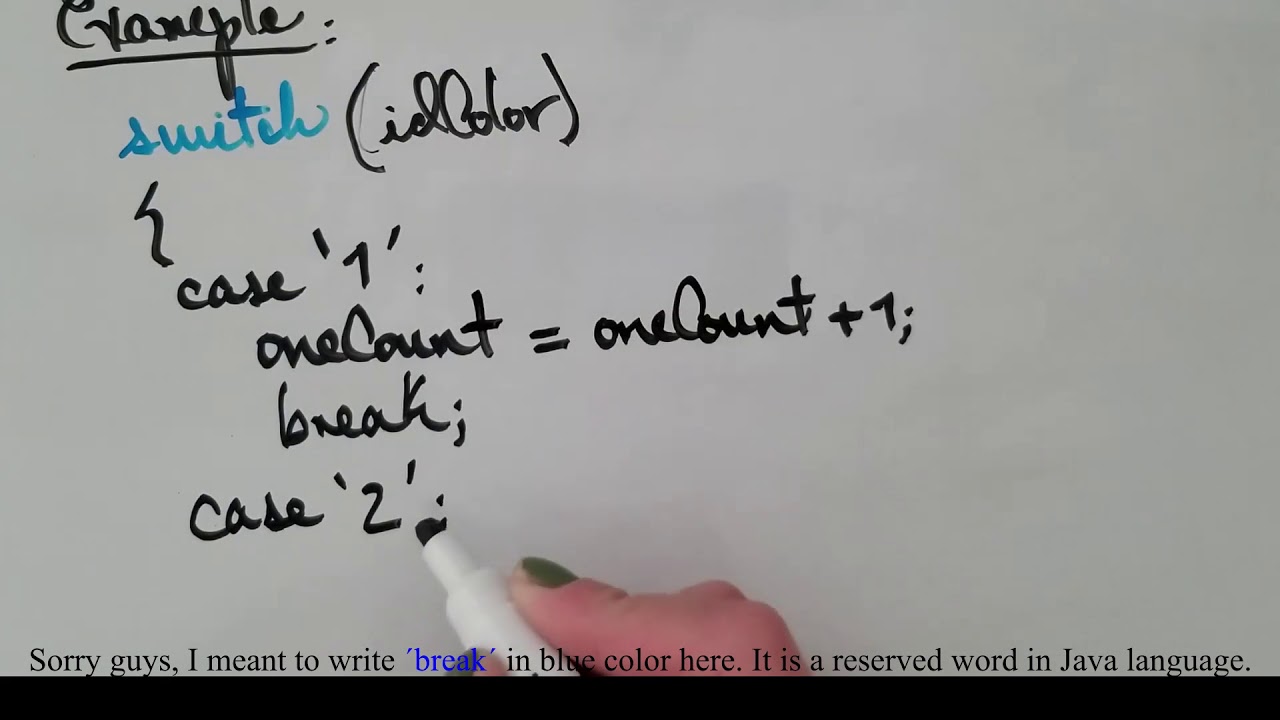 Example:
switch (idColor)
{
case '1':
oneCount = oneCount + 1;
break;
case '2':
Sorry guys, I meant to write ´break´ in blue color here. It is a reserved word in Java language.